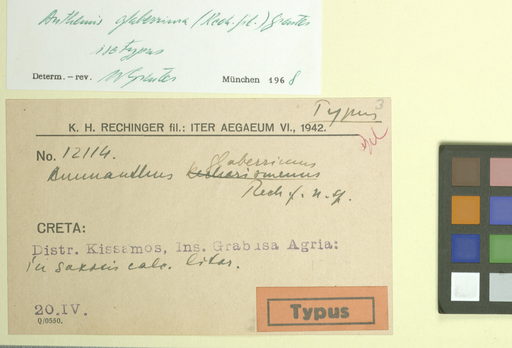 Anthemis glaberrima (Rech. fil.) Greuter
isotypus
Determ.-rev. W Greuter München 1968
Typus 3
K. H. RECHINGER fil.: ITER AEGAEUM VI., 1942.
No. 12114.
glaberrimus
Ammanthus
Rech f. n. sp.
CRETA:
Distr. Kissamos, Ins. Grabusa Agria:
in saxosis calc. litor.
20.IV.
Q/0550.
Typus